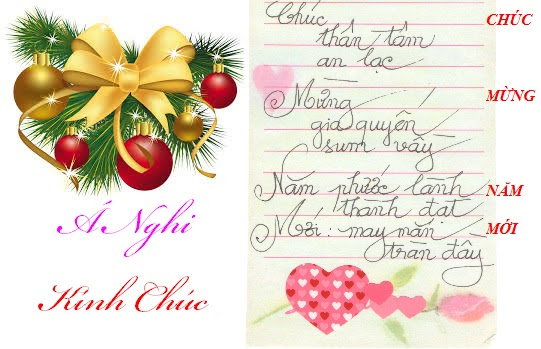 Á Nghi
Kính Chúc
Chúc
thân tâm
an lạc
Mừng
gia quyến
sum vầy
Năm phước lành
thành đạt
Mới: may mắn
tràn đầy
CHÚC
MỪNG
NĂM
MỚI